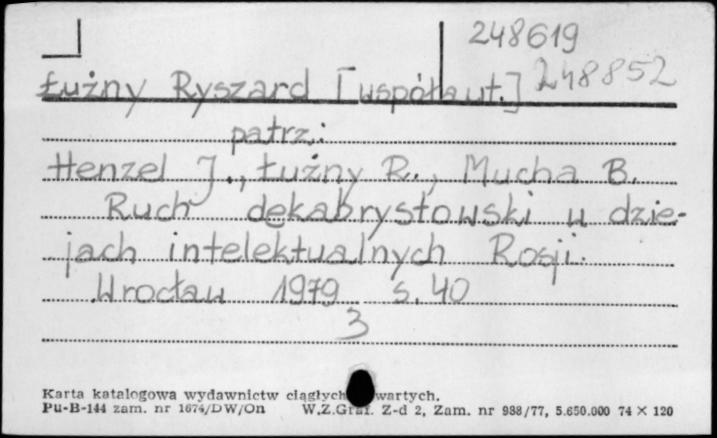 248619
Łużny Ryszard [współaut.] 248852
patrz:
Henzel J., Łużny R., Mucha B.
Ruch dekabrystowski w dzie-
jach intelektualnych Rosji.
Wrocław 1979 s. 40
3
Karta katalogowa wydawnictw ciągłych wartych.
Pu-B-144 zam. nr 1674/DW/On W.Z.Graf. Z-d 2, Zam. nr 988/77, 5.650.000 74 × 120